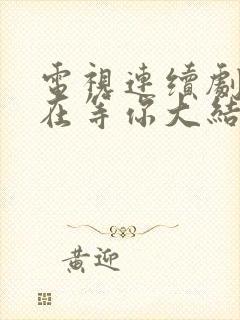 電視連續劇
在等你大結
黃迎